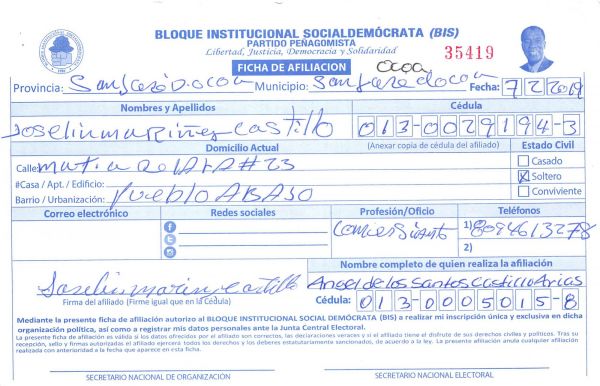 BLOQUE INSTITUCIONAL SOCIALDEMÓCRATA (BIS)
PARTIDO PEÑAGOMISTA
Libertad, Justicia, Democracia y Solidaridad
35419
FICHA DE AFILIACION
ocoa
Provincia: San José D. ocoa Municipio: San Jose de ocoa Fecha: 7 2 2019
Nombres y Apellidos Cédula
Joselin mariñez castillo 013-0029194-3
Domicilio Actual (Anexar copia de cédula del afiliado) Estado Civil
Calle: #23
Casado
#Casa / Apt. / Edificio:
Soltero
Barrio / Urbanización: Pueblo ABAJO
Conviviente
Correo electrónico Redes sociales Profesión/Oficio Teléfonos
1) 8094613278
2)
Nombre completo de quien realiza la afiliación
Angel de los Santos Castillo Arias
Firma del afiliado (Firme igual que en la Cédula)
Cédula: 013-0005015-8
Mediante la presente ficha de afiliación autorizo al BLOQUE INSTITUCIONAL SOCIAL DEMÓCRATA (BIS) a realizar mi inscripción única y exclusiva en dicha
organización política, así como a registrar mis datos personales ante la Junta Central Electoral.
La presente ficha de afiliación es válida si los datos ofrecidos por el afiliado son correctos, las declaraciones veraces y si el afiliado tiene el disfrute de sus derechos civiles y políticos. Tras su
recepción, sello y firmas autorizadas el afiliado ejercerá todos los derechos y los deberes estatutariamente sancionados, de acuerdo a la ley. La presente afiliación anula cualquier afiliación
realizada con anterioridad a la fecha que aparece en esta ficha.
SECRETARIO NACIONAL DE ORGANIZACIÓN SECRETARIO NACIONAL ELECTORAL